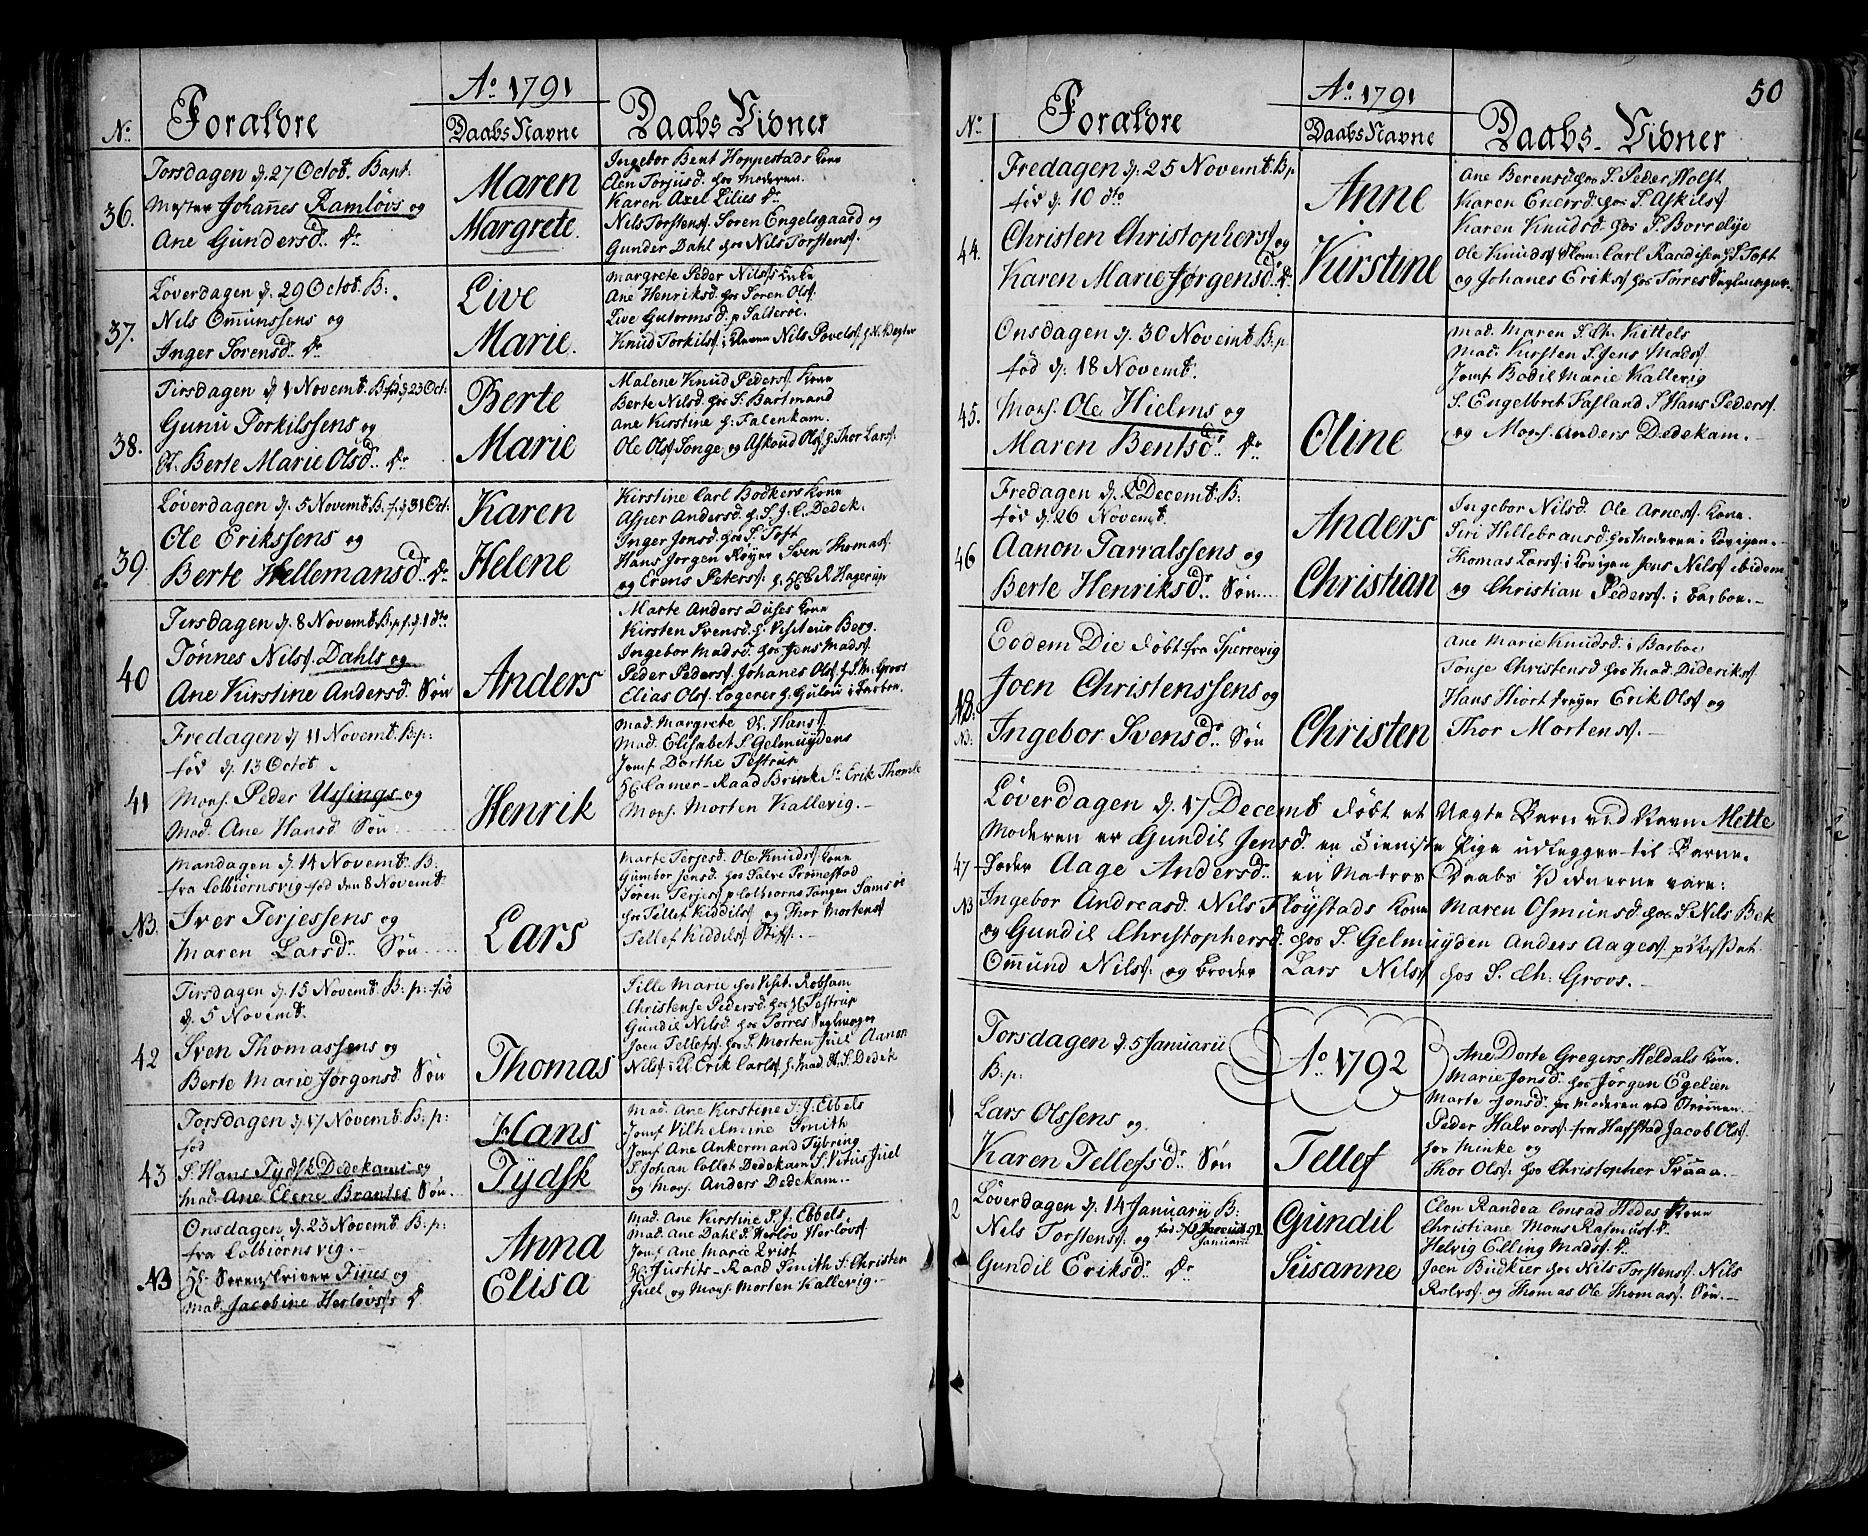 Aº 1791
No. Forældre Daabs Navne Daabs Vidner
36.
Torsdagen d. 27 Octob. Bapt.
Mester Johanes Ramløvs og
Ane Gundersd. Dr.
Maren
Margrete.
Ingebor Bent Hoppestads Kone
Elen Torjusd. hos Moderen.
Karen Axel Lilies Dr
Nils Torstens. Søren Engelsgaard og
Gunder Dahl hos Nils Torstens.
37.
Løverdagen d. 29 Octob. B:
Nils Omunssens og
Inger Sørensd. Dr
Live
Marie.
Margrete Peder Nilss Enke
Ane Henriksd. hos Søren Ols.
Live Gutormsd. p Salterøe.
Knud Torkils. i Nils Povels.
38.
Tirsdagen d. 1 Novemb. B. fød d. 23 Oct:
Gunu Torkilssens og
Berte Marie Olsd. Dr
Berte
Marie
Malene Knud Peders. Kone
Berte Nilsd. hos S. Bartmand
Ane Kirstine h: Falenkam.
Ole Ols. Songe og Askoud Ols. h. Thor Lars.
39.
Løverdagen d. 5 Novemb. B. f. d. 31 Oct:
Ole Erikssens og
Berte Hellemansd. Dr
Karen
Helene
Kirstine Carl Bodkers Kone
Asper Andersd. h. S. J. C. Dedek.
Inger Jonsd. hos S. Toft
Hans Jorgen Røyer Sven Thomas.
og Erens Peters. h. R Hagerup
40
Tirsdagen d. 8 Novemb. B. p. f. d. 1 dto
Tønnes Nils. Dahls og
Ane Kirstine Andersd. Søn
Anders
Marte Anders Duses Kone
Kirsten Svensd. h. Visiteur Berg.
Ingebor Madsd. hos Jens Mads.
Peder Peders. Johanes Ols. h. S. M. Groos
Elias Ols. Logerer h. Gutou i Barboe.
41
Fredagen d. 11 Novemb. B. p:
fød d. 13 Octob.
Mons. Peder Ussings og
Mad. Ane Hansd. Søn
Henrik
Mad. Margrete H. Hans.
Mad. Elisabet S. Gelmuydens
Jomf. Dorthe Testrup
Hr Camer-Raad Brink Sr. Erik Thomle
Mons. Morten Kallevig.
NB.
Mandagen d. 14 Novemb. B.
fra Colbiørnsvig fød den 8 Novemb.
Iver Terjessens og
Maren Larsd. Søn
Lars
Marte Terjesd. Ole Knuds. Kone
Gumbor Jensd. hos Salve Tromestad
Søren Terjes. p Colbiørns Tangen Sams
hos Tellef Kiddils. og Thor Mortens.
Tellef Kiddils. Stifs.
42
Tirsdagen d. 15 Novemb. B: p: fød
d. 5 Novemb.
Sven Thomassens og
Berte Marie Jørgensd. Søn
Thomas
Sille Marie hos Visit. Robsam
Christense Pedersd. hos H. Testrup
Gundil Nilsd. hos Torres Seglmager
Joen Tellefs. hos S. Morten Juel Aanon
Nils. i P. Erik Carls. h. Mad. H. S. Dedek
43
Torsdagen d. 17 Novemb. B: p:
fød
S. Hans Tydsk Dedekams og
Mad. Ane Elene Brantes Søn.
Hans
Tydsk
Mad. Ane Kirstine S. J. Ebbels
Jomf. Vilhelmine Smith
Jomf. Ane Ankermand Tybring
S. Johan Collet Dedekam S. Vitus Juel
og Mons. Anders Dedekam.
NB
Onsdagen d. 23 Novemb. B: p:
fra Colbiørnsvig.
Hr. Sorenskriver Fines og
Mad. Jacobine Herløvs. Dr.
Anna
Elisa
Mad. Ane Kirstine S. J. Ebbels
Mad. Ane Dahl S. Herløv Herløvs.
Jomf. Ane Marie Qvist
Hr Justits-Raad Smith S. Christen
Juel og Mons. Morten Kallevig.
50
Aº 1791
No. Forældre Daabs Navne Daabs Vidner
44.
Fredagen d. 25 Novemb. B. p
fød d. 10 dto
Christen Christophers. og
Karen Marie Jørgensd. Dr
Anne
Kirstine
Ane Berensd. hos S. Peder Holst
Karen Enersd. hos S. Askils.
Karen Knudsd. hos S. Borreloje
Ole Knuds. Carl Raadisen S. Toft
og Johanes Eriks. hos Torres Seglmager
45.
Onsdagen d. 30 Novemb. B: p
fød d. 18 Novemb.
Mons. Ole Hielms og
Maren Bentsd. Dr
Oline
Mad. Maren S. Ch. Kittels
Mad. Kirsten S. Jens Mads.
Jomf. Bodil Marie Kallevig
S. Engelbret Fasland S. Hans Peders.
og Mons. Anders Dedekam.
46
Fredagen d. 2 Decemb. B:
fød d. 26 Novemb.
Aanon Tarralssens og
Berte Henriksd. Søn
Anders
Christian
Ingebor Nilsd. Ole Arnes. Kone.
Siri Hillebransd. hos Moderen i Kovigen.
Thomas Lars. i Kovigen Jens Nils. ibidem
og Christian Peders. i Barboe.
NB.
Eodem Die døbt fra Sperrevig
Joen Christenssens og
Ingebor Svensd. Søn
Christen
Ane Marie Knudsd. i Barboe
Tonje Christensd. hos Mad. Dideriks.
Hans Hiort Erik Ols. og
Thor Mortens.
47
NB
Løverdagen d. 17 Decemb. døbt et Uægte Barn ved Navn Mette
Moderen er Gundil Jensd. en Tieniste Pige udlegger til Barne-
Fader Aage Andersd. en Matros Daabs Vidnerne vare:
Ingebor Andreasd. Nils Fløystads Kone Maren Osmunsd. hos S. Nils Bek
og Gundil Christophersd. hos S. Gelmuyden Anders Aages.
Omund Nils. og Broder Lars Nils. hos S. Ch: Groos.
Aº 1792
1
Torsdagen d. 5 Januarii
B: p:
Lars Olssens og
Karen Tellefsd. Søn
Tellef
Ane Dorte Gregers Heldals Kone.
Marie Jonsd. hos Jørgen Egelien
Marte Jonsd. hos Moderen ved Strømen.
Peder Halvors. fra Haffstad Jacob Ols.
hos Minke og
Thor Ols. hos Christopher Traaa.
2
Løverdagen d. 14 Januarii B:
Nils Torstens. og fød Januarii
Gundil Eriksd. Dr
Gundil
Susanne
Elen Randea Conrad Hedes Kone
Christiane Mons Rasmus. Dr
Helvig Elling Mads. Dr.
Joen Budkier hos Nils Torstens. Nils
Rolvs. og Thomas Ole Thomas. Søn.